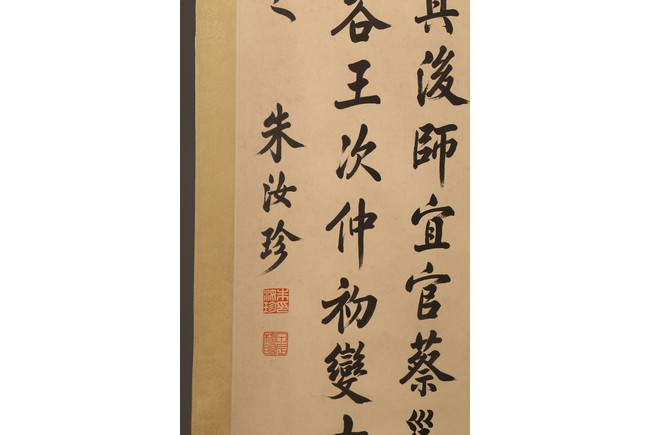 其後師宜官蔡邕
谷王次仲初變古
之
朱汝珍